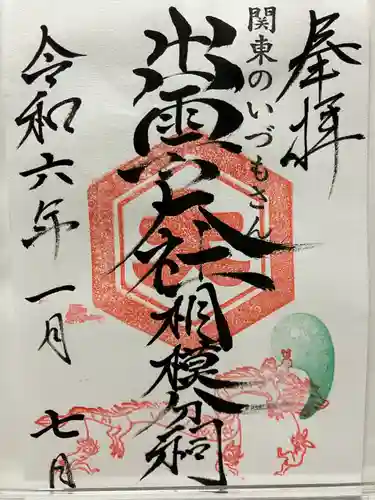 奉拝
関東のいづもさん
出雲大社相模分祠
令和六年一月七日